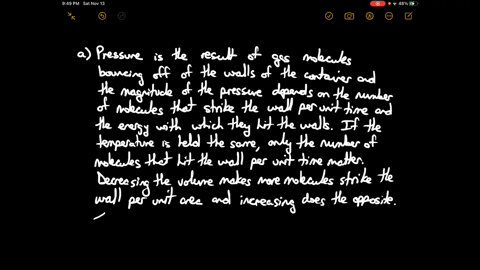 9:49 PM Sat Nov 13
48%
a) Pressure is the result of gas molecules
bouncing off of the walls of the container and
the magnitude of the pressure depends on the number
of molecules that strike the wall per unit time and
the energy with which they hit the walls. If the
temperature is held the same, only the number of
molecules that hit the wall per unit time matter.
Decreasing the volume makes more molecules strike the
wall per unit area and increasing does the opposite.